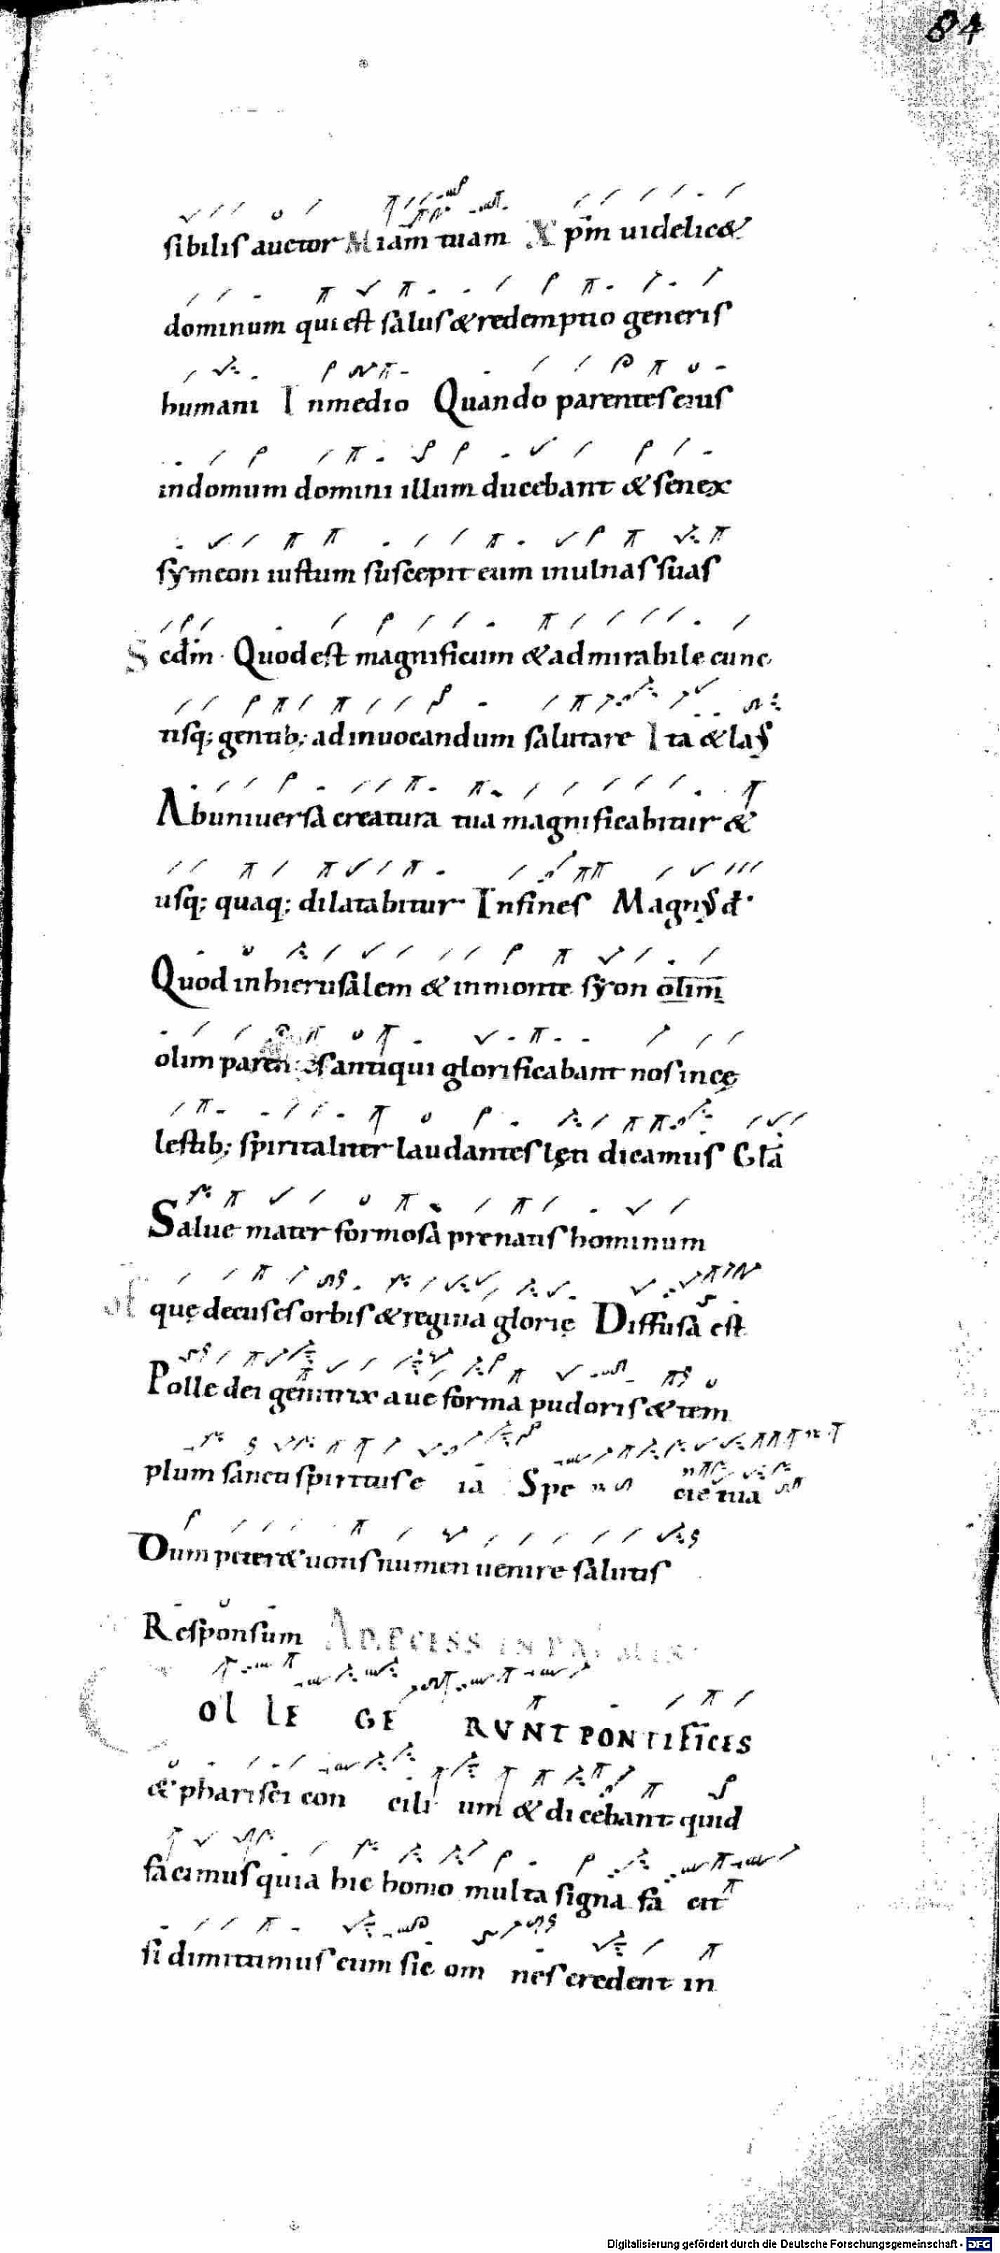 84
sibilis auctor Miam tuam Xpm uidelic&
dominum qui est salus & redemptio generis
humani Inmedio Quando parentes eius
indomum domini illum ducebant & senex
symeon iustum suscepit eum inulnas suas
S ed̄m · Quod est magnificum & admirabile cunc
tisq; gentib; ad inuocandum salutare Ita & la
Abuniuersa creatura tua magnificabitur &
usq; quaq; dilatabitur Infines Magn
Quod inhierusalem & inmonte syon olim
olim paren es antiqui glorificabant nos incę
lestib; spiritaliter laudantes lęti dicamus Gła
Salue mater formosa prenatis hominum
of quę decus es orbis & regina glorię Diffusa est
Polle dei genitrix aue forma pudoris & tem
plum sancti spiritus e ia Spe cie tua
Dum peteret uotis numen uenire salutis
Responsum
OL LE GE RUNT PONTIFICES
& pharisei con cili um & dicebant quid
facimus quia hic homo multa signa fa cit
si dimittimus eum sic om nes credent in
Digitalisierung gefördert durch die Deutsche Forschungsgemeinschaft - DFG